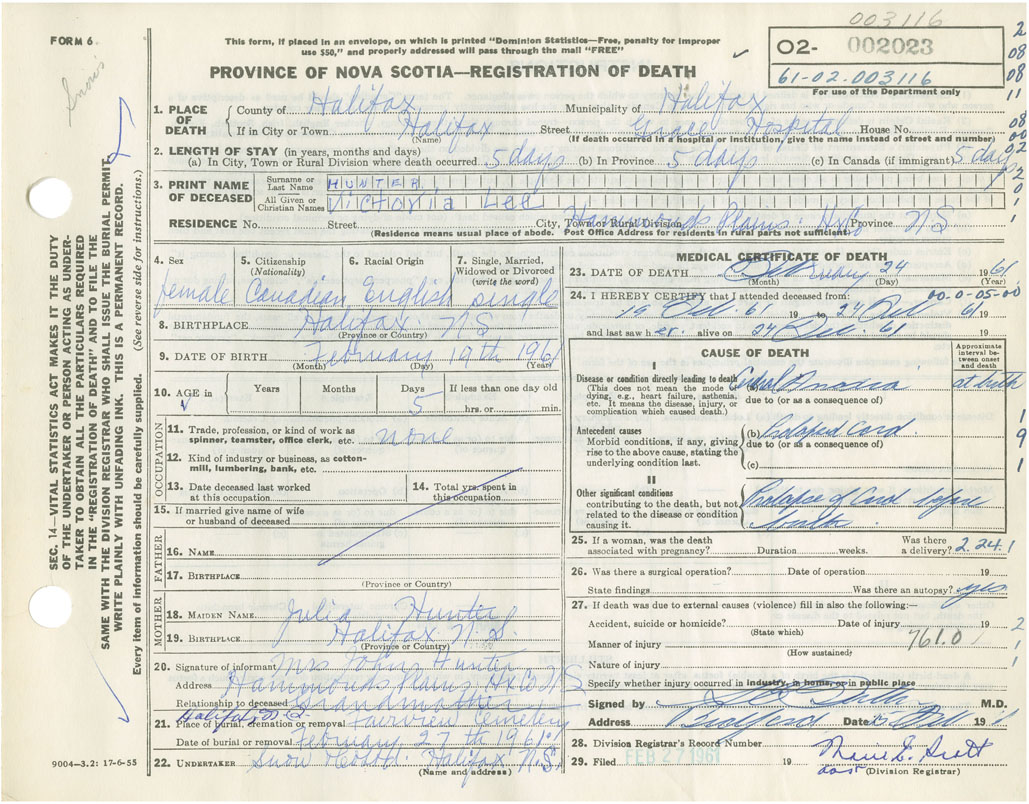 003116
FORM 6
This form, if placed in an envelope, on which is printed "Dominion Statistics—Free, penalty for improper
use $50," and properly addressed will pass through the mail "FREE"
02- 002023
61-02-003116
For use of the Department only
PROVINCE OF NOVA SCOTIA—REGISTRATION OF DEATH
2
08
08
11
08
00
02
2
0
1
1
Snow's
SEC. 14—VITAL STATISTICS ACT MAKES IT THE DUTY
OF THE UNDERTAKER OR PERSON ACTING AS UNDER-
TAKER TO OBTAIN ALL THE PARTICULARS REQUIRED
IN THE "REGISTRATION OF DEATH" AND TO FILE THE
SAME WITH THE DIVISION REGISTRAR WHO SHALL ISSUE THE BURIAL PERMIT.
WRITE PLAINLY WITH UNFADING INK. THIS IS A PERMANENT RECORD.
Every item of information should be carefully supplied. (See reverse side for instructions.)
1. PLACE OF DEATH County of Halifax Municipality of Halifax
If in City or Town Halifax Street Grace Hospital House No.
(Name) (If death occurred in a hospital or institution, give the name instead of street and number)
2. LENGTH OF STAY (in years, months and days)
(a) In City, Town or Rural Division where death occurred 5 days (b) In Province 5 days (c) In Canada (if immigrant) 5 days
3. PRINT NAME OF DECEASED
Surname or Last Name HUNTER
All Given or Christian Names Victoria Lee
RESIDENCE No. Street City, Town or Rural Division Hammonds Plains Hx Province NS
(Residence means usual place of abode. Post Office Address for residents in rural parts not sufficient)
4. Sex female
5. Citizenship (Nationality) Canadian
6. Racial Origin English
7. Single, Married, Widowed or Divorced (write the word) single
8. BIRTHPLACE Halifax NS
(Province or Country)
9. DATE OF BIRTH February 19th 1961
(Month) (Day) (Year)
10. AGE in Years Months Days 5 If less than one day old
hrs. or min.
OCCUPATION
11. Trade, profession, or kind of work as
spinner, teamster, office clerk, etc. none
12. Kind of industry or business, as cotton-
mill, lumbering, bank, etc.
13. Date deceased last worked
at this occupation
14. Total yrs. spent in
this occupation
15. If married give name of wife
or husband of deceased
FATHER
16. NAME
17. BIRTHPLACE
(Province or Country)
MOTHER
18. MAIDEN NAME Julia Hunter
19. BIRTHPLACE Halifax N.S.
(Province or Country)
20. Signature of informant Mrs John Hunter
Address Hammonds Plains Hx Co NS
Relationship to deceased Grandmother
Halifax N.S.
21. Place of burial, cremation or removal Fairview Cemetery
Date of burial or removal February 27th 1961
22. UNDERTAKER Snow Halifax N.S.
(Name and address)
9004—3.2: 17-6-55
MEDICAL CERTIFICATE OF DEATH
23. DATE OF DEATH February 24 1961
(Month) (Day) (Year)
24. I HEREBY CERTIFY that I attended deceased from: 00-0-05-00
19 Feb. 61 19 to 24 Feb 61 19
and last saw h er alive on 24 Feb. 61 19
CAUSE OF DEATH
Approximate interval be- tween onset and death
I
Disease or condition directly leading to death
(This does not mean the mode of
dying, e.g., heart failure, asthenia,
etc. It means the disease, injury, or
complication which caused death.)
(a) Anoxia at birth
due to (or as a consequence of)
Antecedent causes
Morbid conditions, if any, giving
rise to the above cause, stating the
underlying condition last.
(b) Prolapsed Cord
due to (or as a consequence of)
(c)
II
Other significant conditions
contributing to the death, but not
related to the disease or condition
causing it.
Prolapse of Cord before
birth.
1
9
1
25. If a woman, was the death
associated with pregnancy? Duration weeks. Was there
a delivery? 2.24.1
26. Was there a surgical operation? Date of operation 19
State findings Was there an autopsy? yes
27. If death was due to external causes (violence) fill in also the following:—
Accident, suicide or homicide? Date of injury 19
(State which)
Manner of injury 761.0
(How sustained)
Nature of injury
2
1
1
Specify whether injury occurred in industry, in home, or in public place
Signed by M.D.
Address Bedford Date Feb 19
28. Division Registrar's Record Number
29. Filed FEB 27 1961 19
(Division Registrar)